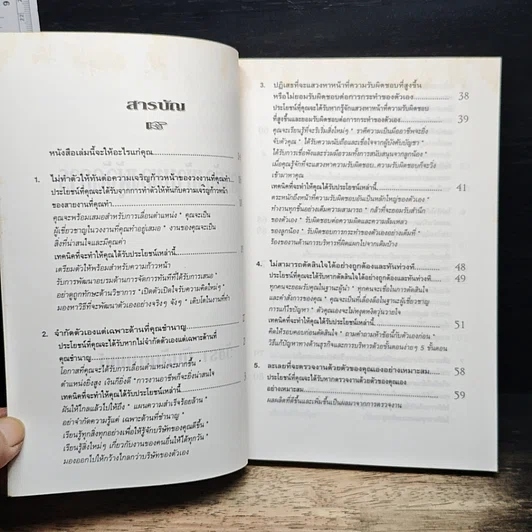 สารบัญ
หนังสือเล่มนี้จะให้อะไรแก่คุณ
1. ไม่ทำตัวให้ทันต่อความเจริญก้าวหน้าของวงงานที่คุณทำ
ประโยชน์ที่คุณจะได้รับจากการทำตัวให้ทันกับความเจริญก้าวหน้า
ของสายงานที่คุณทำ
คุณจะพร้อมเสมอสำหรับการเลื่อนตำแหน่ง * คุณจะเป็น
ผู้เชี่ยวชาญในวงงานที่คุณทำอยู่เสมอ * งานของคุณจะเป็น
สิ่งที่น่าสนใจและมีคุณค่า
เทคนิคที่จะทำให้คุณได้รับประโยชน์เหล่านี้
เตรียมตัวให้พร้อมสำหรับความก้าวหน้า
รับการพัฒนาอบรมด้านการจัดการทันทีที่ได้รับการเสนอ *
อย่าดูถูกทักษะด้านวิชาการ * เปิดตัวเปิดใจรับความคิดใหม่ๆ *
มองหาวิธีที่จะพัฒนาตัวเองอย่างจริงๆ จังๆ * เติบโตในงานที่ทำ
2. จำกัดตัวเองแต่เฉพาะด้านที่คุณชำนาญ
ประโยชน์ที่คุณจะได้รับหากไม่จำกัดตัวเองแต่เฉพาะด้านที่
คุณชำนาญ
โอกาสที่คุณจะได้รับการเลื่อนตำแหน่งจะมากขึ้น *
ตำแหน่งยิ่งสูง เงินก็ยิ่งดี * การงานอาชีพก็จะยิ่งน่าสนใจ
เทคนิคที่จะทำให้คุณได้รับประโยชน์เหล่านี้
ฝันให้ไกลแล้วไปให้ถึง * แผนความสำเร็จร้อยล้าน *
อย่าจำกัดความรู้แค่ เฉพาะด้านที่ชำนาญ *
เรียนรู้ทุกสิ่งทุกอย่างเพื่อให้รู้จักบริษัทของคุณดีขึ้น *
เรียนรู้สิ่งใหม่ๆ เกี่ยวกับงานของคนอื่นให้ได้ทุกวัน *
มองออกไปให้กว้างไกลกว่าบริษัทของตัวเอง
3. ปฏิเสธที่จะแสวงหาหน้าที่ความรับผิดชอบที่สูงขึ้น
หรือไม่ยอมรับผิดชอบต่อการกระทำของตัวเอง 38
ประโยชน์ที่คุณจะได้รับหากรู้จักแสวงหาหน้าที่ความรับผิดชอบ
ที่สูงขึ้นและยอมรับผิดชอบต่อการกระทำของตัวเอง 39
คุณจะเรียนรู้ที่จะริเริ่มสิ่งใหม่ๆ * ราศีความเป็นมืออาชีพจะยิ่ง
จับตัวคุณ * ได้รับความนับถือและเชื่อใจจากผู้บังคับบัญชา *
ได้รับการเชื่อฟังและร่วมมือรวมทั้งการสนับสนุนจากลูกน้อง *
เมื่อคุณรู้จักที่จะแสวงหาความรับผิดชอบ ความรับผิดชอบก็จะวิ่ง
เข้ามาหาคุณ
เทคนิคที่จะทำให้คุณได้รับประโยชน์เหล่านี้ 41
ตระหนักถึงหน้าที่ความรับผิดชอบอันเป็นหลักใหญ่ของตัวเอง *
ทำงานทุกชิ้นอย่างเต็มความสามารถ * กล้าที่จะยอมรับสำนึก
ของตัวเอง * รับผิดชอบต่อความผิดพลาดและความล้มเหลว
ของลูกน้อง * รับผิดชอบการกระทำของตัวเองอย่างเต็มที่ *
ร้องของานด้านการบริหารที่ผิดแผกไปจากเดิมบ้าง
4. ไม่สามารถตัดสินใจได้อย่างถูกต้องและทันท่วงที 48
ประโยชน์ที่คุณจะได้รับหากตัดสินใจได้อย่างถูกต้องและทันท่วงที 49
ทุกคนจะยอมรับคุณในฐานะผู้นำ * ทุกคนจะเชื่อในการตัดสินใจ
และคำสั่งการของคุณ * คุณจะเป็นที่เลื่องลือในฐานะผู้เชี่ยวชาญ
การแก้ไขปัญหา * ตัวคุณเองจะไม่หงุดหงิดวุ่นวายใจ
เทคนิคที่จะทำให้คุณได้รับประโยชน์เหล่านี้ 51
คิดไตร่ตรองให้รอบคอบก่อนตัดสินใจ * ถามคำถามห้าข้อนี้กับตัวเองก่อน
วิธีแก้ปัญหาทางด้านธุรกิจและการบริหารด้วยขั้นตอนง่ายๆ 5 ขั้นตอน
5. ละเลยที่จะตรวจงานด้วยตัวของคุณเองอย่างเหมาะสม 58
ประโยชน์ที่คุณจะได้รับหากตรวจงานด้วยตัวของคุณเอง
อย่างเหมาะสม 59
ผลผลิตที่ดีขึ้นและเพิ่มขึ้นเป็นผลมาจากการตรวจงาน